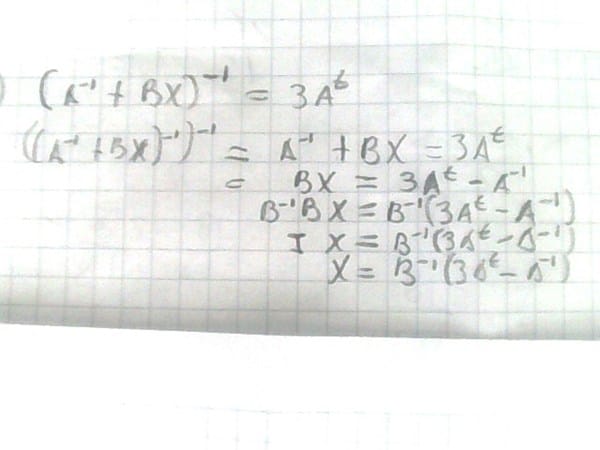 ) (A⁻¹ + BX)⁻¹ = 3Aᵗ
((A⁻¹ + BX)⁻¹)⁻¹ = A⁻¹ + BX = 3Aᵗ
= BX = 3Aᵗ - A⁻¹
B⁻¹BX = B⁻¹(3Aᵗ - A⁻¹)
I X = B⁻¹(3Aᵗ - A⁻¹)
X = B⁻¹(3Aᵗ - A⁻¹)